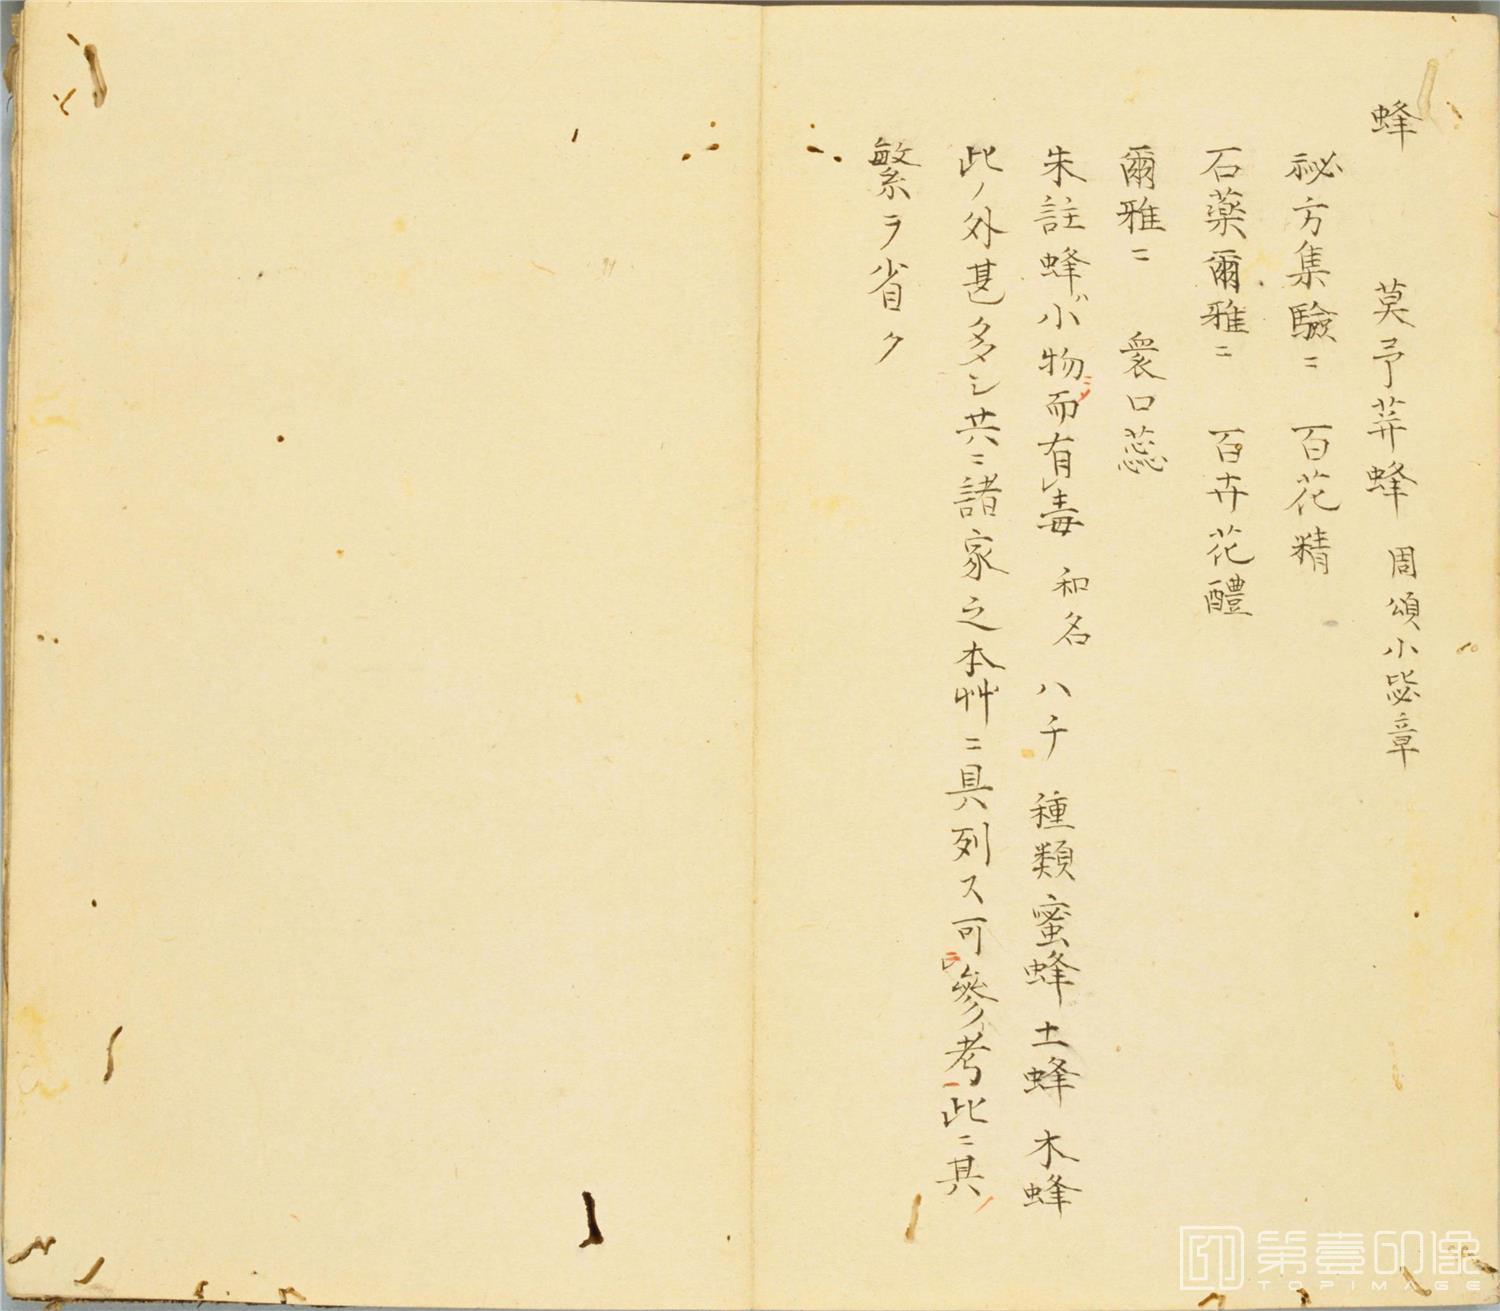 蜂　莫予荓蜂　周頌小毖章
祕方集驗ニ　百花精
石藥爾雅ニ　百卉花醴
爾雅ニ　衆口蕊
朱註蜂ハ小物ニシテ而有レ毒　和名　ハチ　種類蜜蜂　土蜂　木蜂
此ノ外甚多シ共ニ諸家之本艸ニ具列ス可ニ參考一此ニ其ノ
繁ヲ省ク
第壹印像
TOPIMAGE